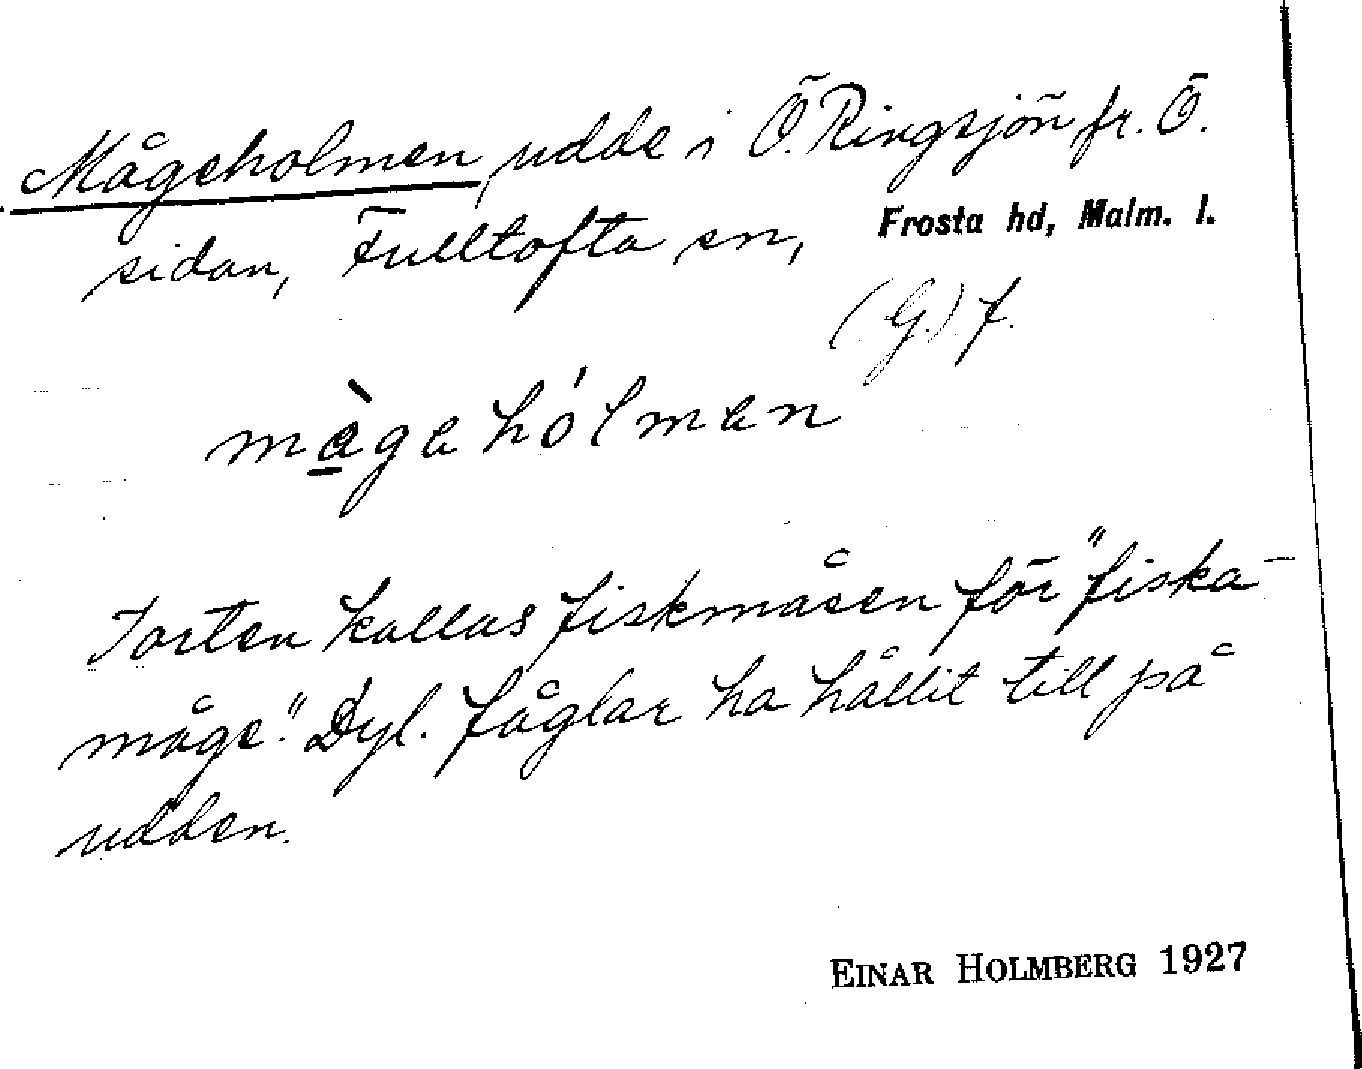 Mågeholmen, udde i Ö. Ringsjön fr. Ö.
sidan, Fulltofta sn, Frosta hd, Malm. l.
(G.) f.
màgehólmen
Torten kallas fiskmåsen för "fiska-
måge." Dyl. fåglar ha hållit till på
udden.
EINAR HOLMBERG 1927